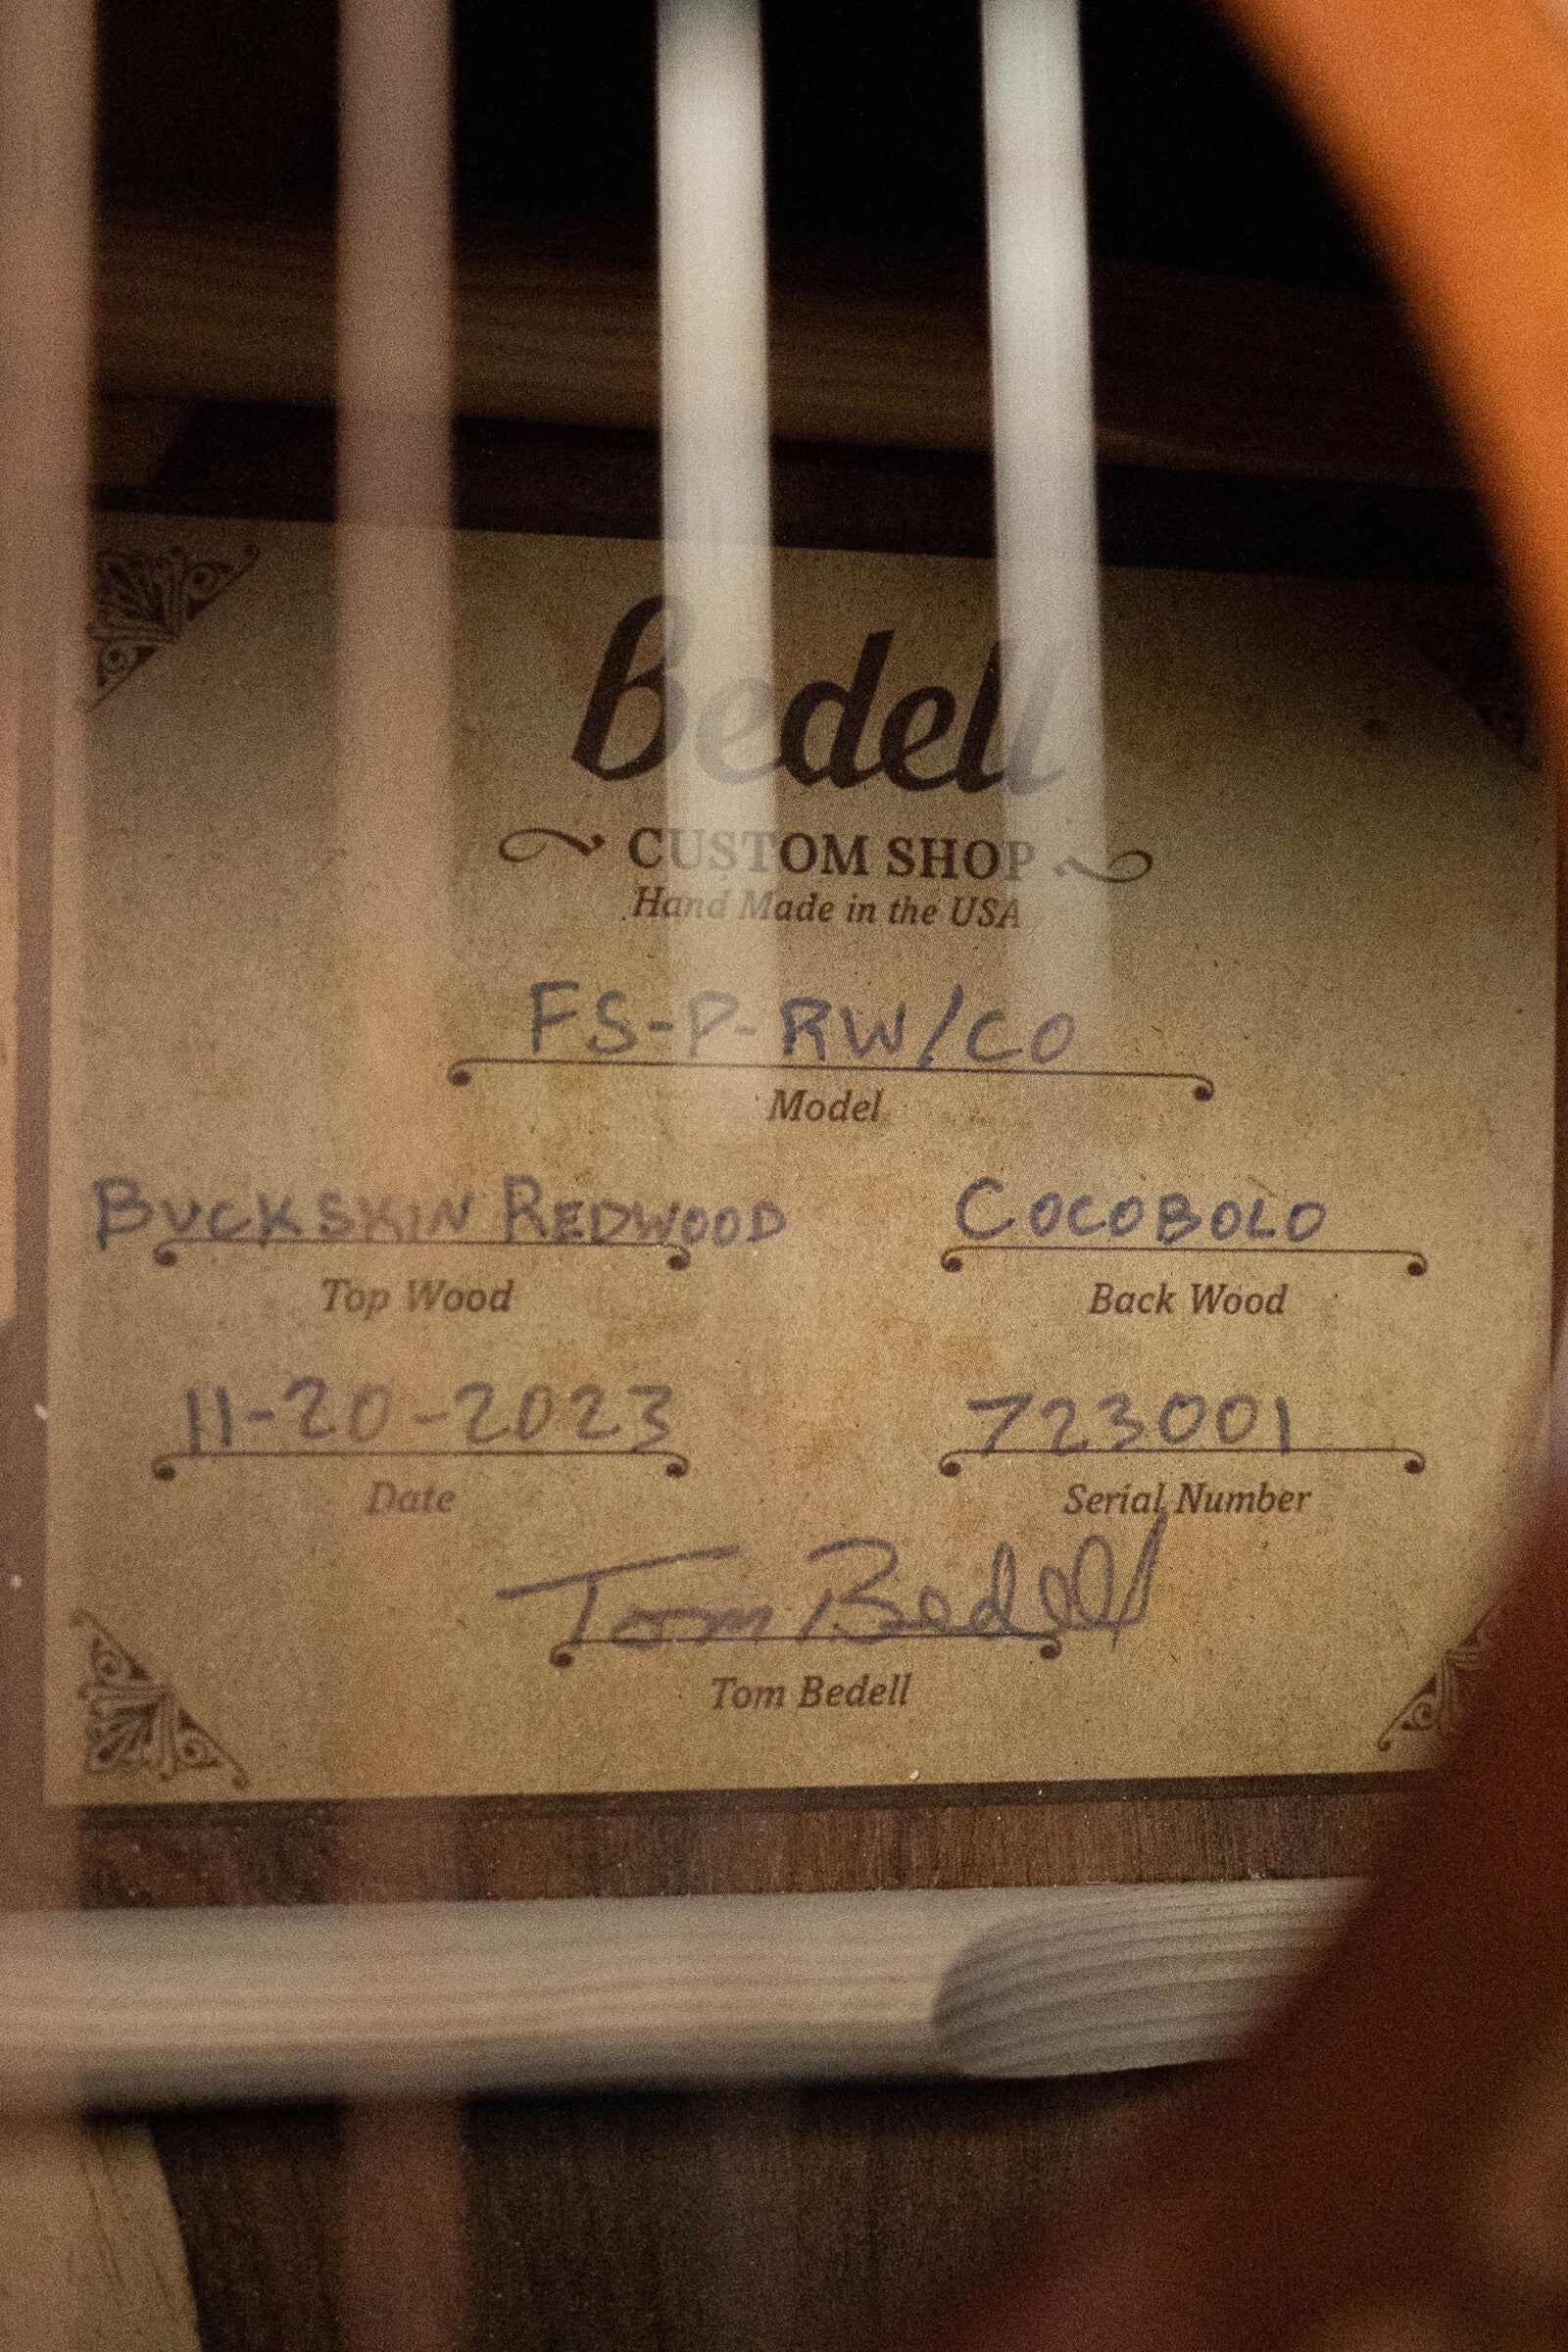 Bedell
CUSTOM SHOP
Hand Made in the USA
FS-P-RW/CO
Model
BUCKSKIN REDWOOD COCOBOLO
Top Wood Back Wood
11-20-2023 723001
Date Serial Number
Tom Bedell
Tom Bedell